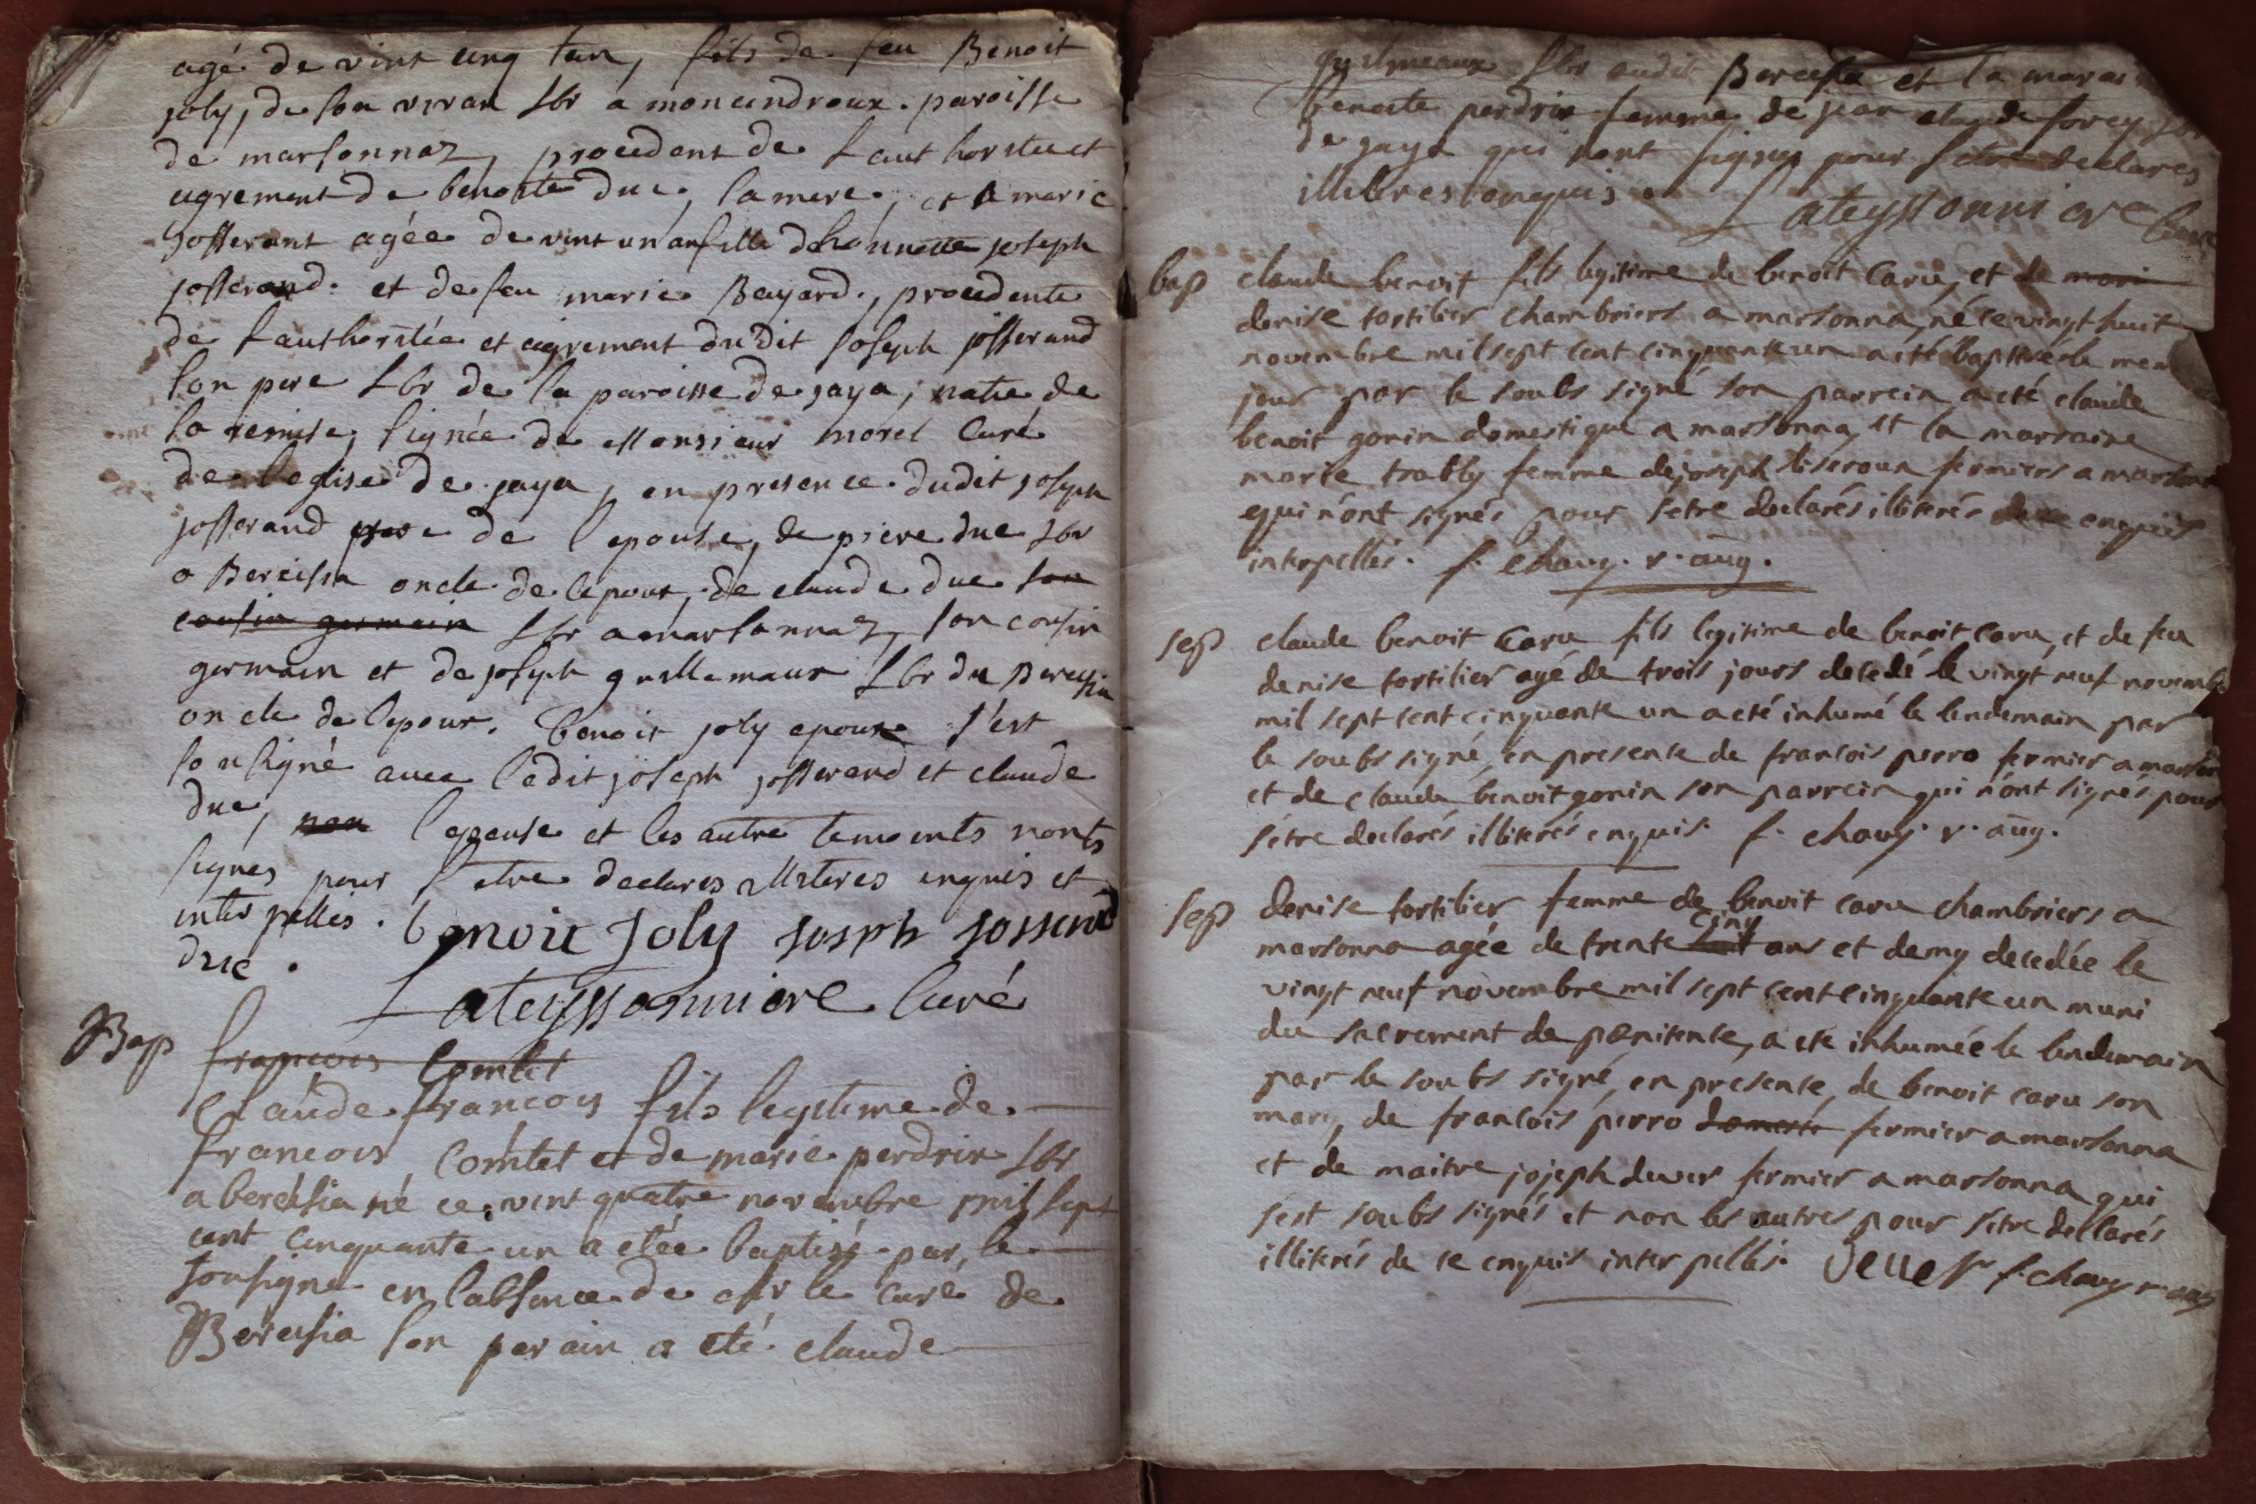 agé de vint cinq tan, fils de feu Benoit
joly, de son vivan Lbr a moncindroux paroisse
de marsonnaz, procedent de Lauthoritee et
agrement de benoite duc, la mere, et marie
josserant agée de vint un an fille dhonnette joseph
josserand et de feu marie Bayard, procedente
de Lauthoritée et agrement dudit joseph josserand
son pere Lbr de la paroisse de jaya, natie de
la remise, signée de Monsieur morel curé
de leglise de jaya, en presence dudit joseph
josserand pere de lepouse, de piere duc Lbr
a Bereisia oncle de lepoux, de claude duc son
cousin germain Lbr a marsonnaz, son cousin
germain et de joseph guillemaux Lbr du Bereisia
oncle de lepoux. benoit joly epoux s'est
sousigné avec ledit joseph josserand et claude
duc, non lepouse et les autre temoints nonts
signés pour setre declares illiteres enquis et
interpellés. benoit joly joseph josserand
duc.
Lateyssonniere Curé
Bap francois Comtet
Claude francois fils legitime de
francois Comtet et de marie perdrix Lbr
a bereisia né ce vint quatre novembre mil sept
cent cinquante un a etée baptisé par le
sousigne en labsence de Mr le curé de
Bereisia son parain a eté claude
guilmeaux Lbr audit Bereisia et la marai
benoite perdrix femme de jean claude forey
de jaya qui nont signes pour setre declares
illiteres enquis Lateyssonniere Curé
bap claude benoit fils legitime de benoit Caru, et de mari
denise tortilier chambriers a marsonna, né ce vingt huit
novembre mil sept cent cinquante un a eté baptisé le mem
jour par le soubs signé son parrein a eté claude
benoit gonin domestique a marsonna et la marraine
marie trably femme de joseph liseroux fermiers a marsonna
qui n'ont signés pour setre declarés illiterés de ce enquis
interpellés. f. chavy. v. aug.
sep claude benoit Caru fils legitime de benoit Caru, et de feu
denise tortilier agé de trois jours decedé le vingt neuf novembre
mil sept cent cinquante un a eté inhumé le lendemain par
le soubs signé, en presente de francois perro fermier a marson
et de claude benoit gonin son parrein qui n'ont signés pour
setre declarés illiterés enquis. f. chavy. v. aug.
sep denise tortilier femme de benoit caru chambriers a
marsonna agée de trente cinq ans et demy decedée le
vingt neuf novembre mil sept cent cinquante un muni
du sacrement de pœnitente, a ete inhumée le lendemain
par le soubs signé, en presente, de benoit caru son
mary, de francois perro domesti fermier a marsonna
et de maitre jojeph dever fermier a marsonna qui
sest soubs signés et non les autres pour setre dellarés
illiterés de ce enquis interpellés. Devet f. chavy v. aug